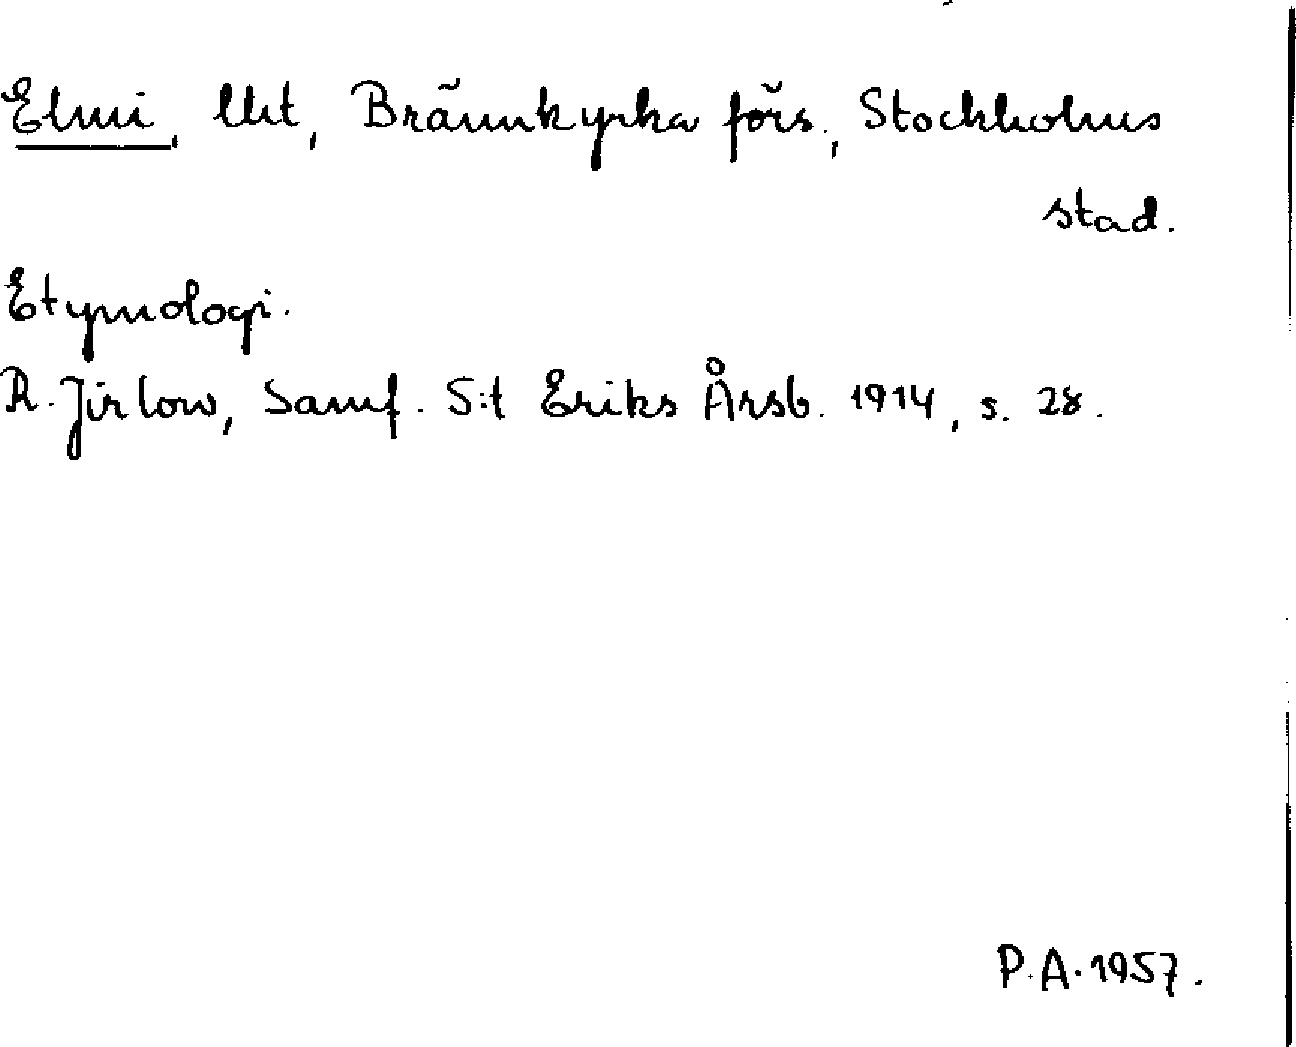 Elmi, lht, Brännkyrka förs., Stockholms
stad.
Etymologi.
R. Jirlow, Samf. S:t Eriks Årsb. 1914, s. 28.
P.A. 1957.